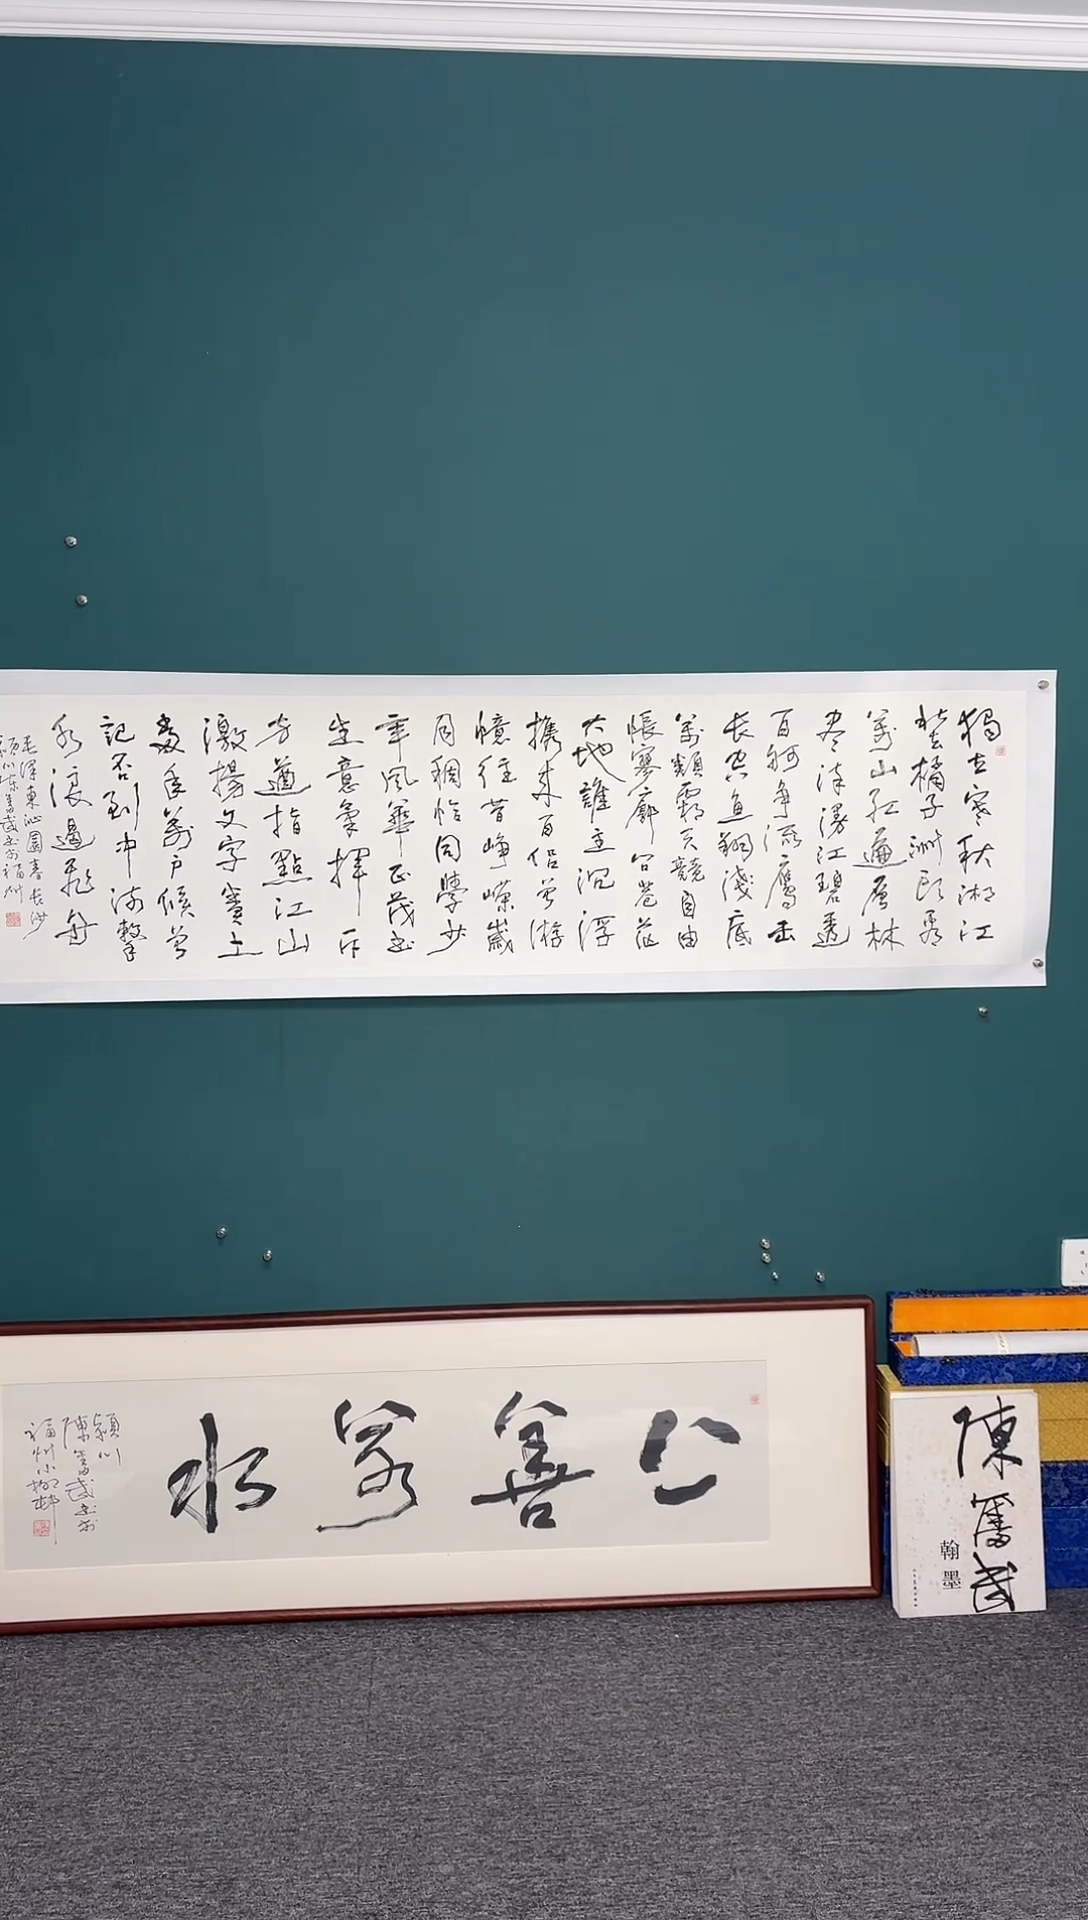 獨立寒秋湘江
北去橘子洲頭看
萬山紅遍層林
盡染漫江碧透
百舸爭流鷹击
長空魚翔淺底
萬類霜天競自由
悵寥廓問蒼茫
大地誰主沉浮
攜來百侣曾游
憶往昔崢嶸歲
月稠恰同學少
年風華正茂書
生意氣揮斥
方遒指點江山
激揚文字糞土
當年萬戶侯曾
記否到中流擊
水浪遏飛舟
毛澤東沁園春長沙
潁川陳奮武書於福州
上善若水
潁川
陳奮武書於
福州小柳村
陳奮武
翰墨